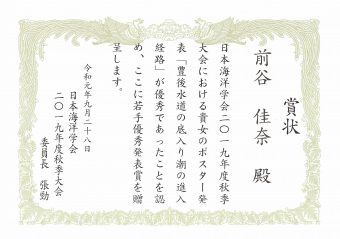 賞状
前谷 佳奈 殿
日本海洋学会二〇一九年度秋季
大会における貴女のポスター発
表「豊後水道の底入り潮の進入
経路」が優秀であったことを認
め、ここに若手優秀発表賞を贈
呈します。
令和元年九月二十八日
日本海洋学会
二〇一九年度秋季大会
委員長 張勁